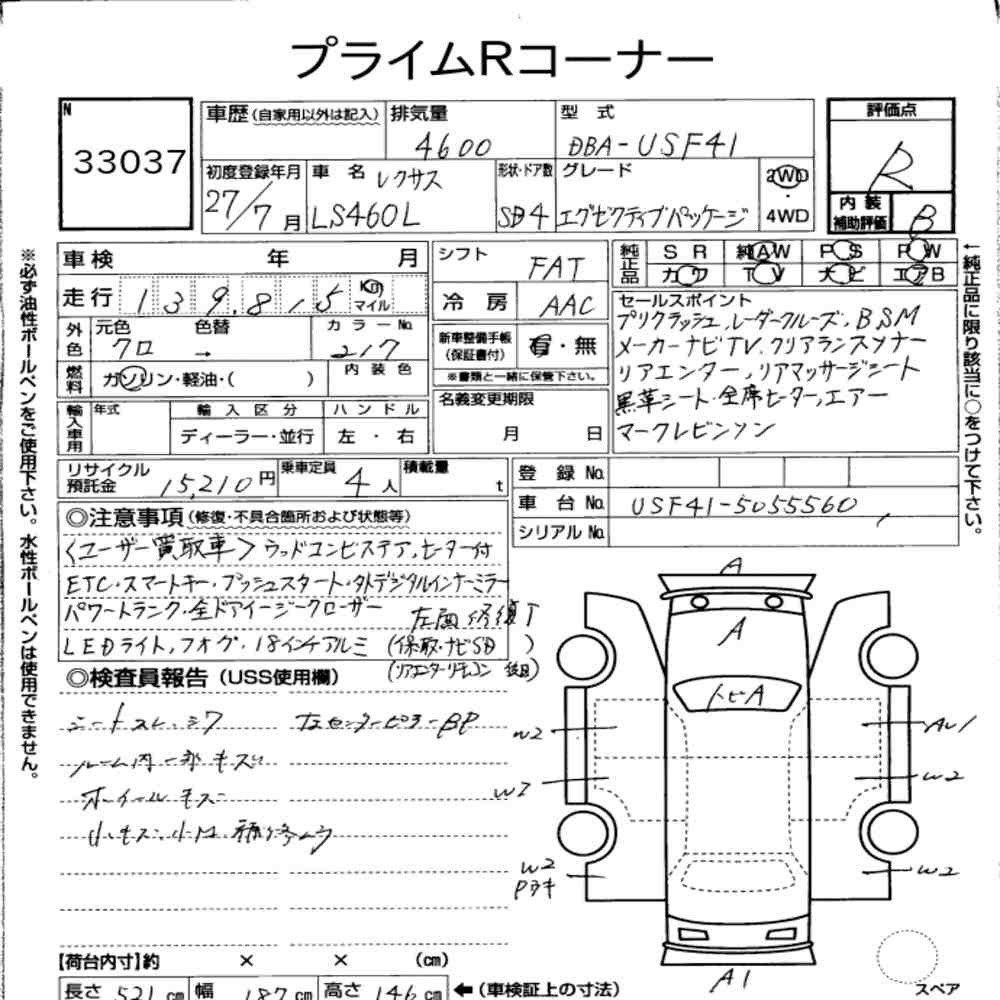 プライムRコーナー
N
33037
車歴 (自家用以外は記入)
排気量
4600
型式
DBA-USF41
評価点
R
初度登録年月
27/7月
車名 レクサス
LS460L
形状・ドア数
SD4
グレード
エグゼクティブパッケージ
2WD
・
4WD
内装
補助評価
B
車検 年 月
走行 139,815 Km マイル
外色
元色 色替
クロ →
カラーNo.
217
燃料
ガソリン・軽油・( )
内装色
輸入車用
年式
輸入区分
ディーラー・並行
ハンドル
左・右
シフト
FAT
冷房
AAC
新車整備手帳
(保証書付)
有・無
※書類と一緒に保管下さい。
名義変更期限
月 日
純正品
SR 純AW PS PW
カワ TV ナビ エアB
セールスポイント
プリクラッシュ,レーダークルーズ,BSM
メーカーナビTV.クリアランスソナー
リアエンター,リアマッサージシート
黒革シート・全席ヒーター,エアー
マークレビンソン
←純正品に限り該当に○をつけて下さい。
※必ず油性ボールペンをご使用下さい。水性ボールペンは使用できません。
リサイクル
預託金 15,210円
乗車定員
4人
積載量
t
登録No.
車台No. USF41-5055560
シリアルNo.
◎注意事項 (修復・不具合箇所および状態等)
<ユーザー買取車> ウッドコンビステア,ヒーター付
ETC・スマートキー・プッシュスタート・外デジタルインナーミラー
パワートランク・全ドアイージークローザー
LEDライト,フォグ・18インチアルミ
(保取・ナビSD )
◎検査員報告 (USS使用欄)
シートスレ・シワ
左センターピラーBP
ルーム内一部キズ
ホイールキズ
A
A
トビA
W2
AU1
W2
W2
W2
A1
【荷台内寸】約 × × (cm)
長さ 521cm 幅 187cm 高さ 146cm
←(車検証上の寸法)
スペア